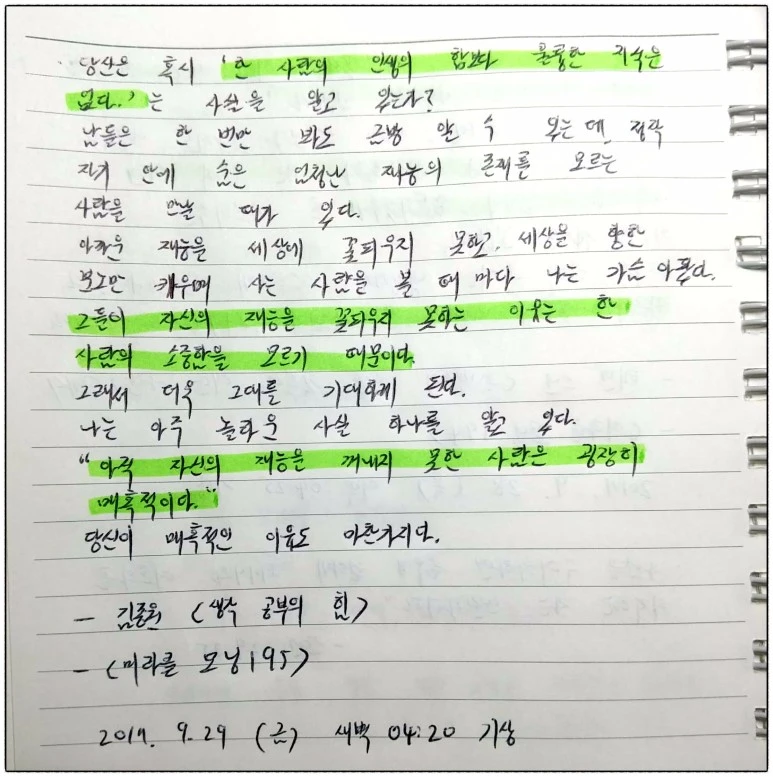 당신은 혹시 '한 사람의 인생의 힘보다 물콩한 지식은
없다.'는 사실을 알고 있는가?
남들은 한 번만 봐도 금방 알 수 있는데, 정작
자기 안에 숨은 엄청난 재능의 존재를 모르는
사람을 만날 때가 있다.
아까운 재능을 세상에 꽃피우지 못하고, 세상을 향한
분노만 키우며 사는 사람을 볼 때 마다 나는 가슴 아프다.
그들이 자신의 재능을 꽃피우지 못하는 이유는 한
사람의 소중함을 모르기 때문이다.
그래서 더욱 그대를 기대하게 된다.
나는 아주 놀라운 사실 하나를 알고 있다.
"아직 자신의 재능을 꺼내지 못한 사람은 굉장히
매혹적이다."
당신이 매혹적인 이유도 마찬가지다.
- 김종원 (생각 공부의 힘)
- (미라클 모닝 195)
2017. 9. 29 (금) 새벽 04:20 기상